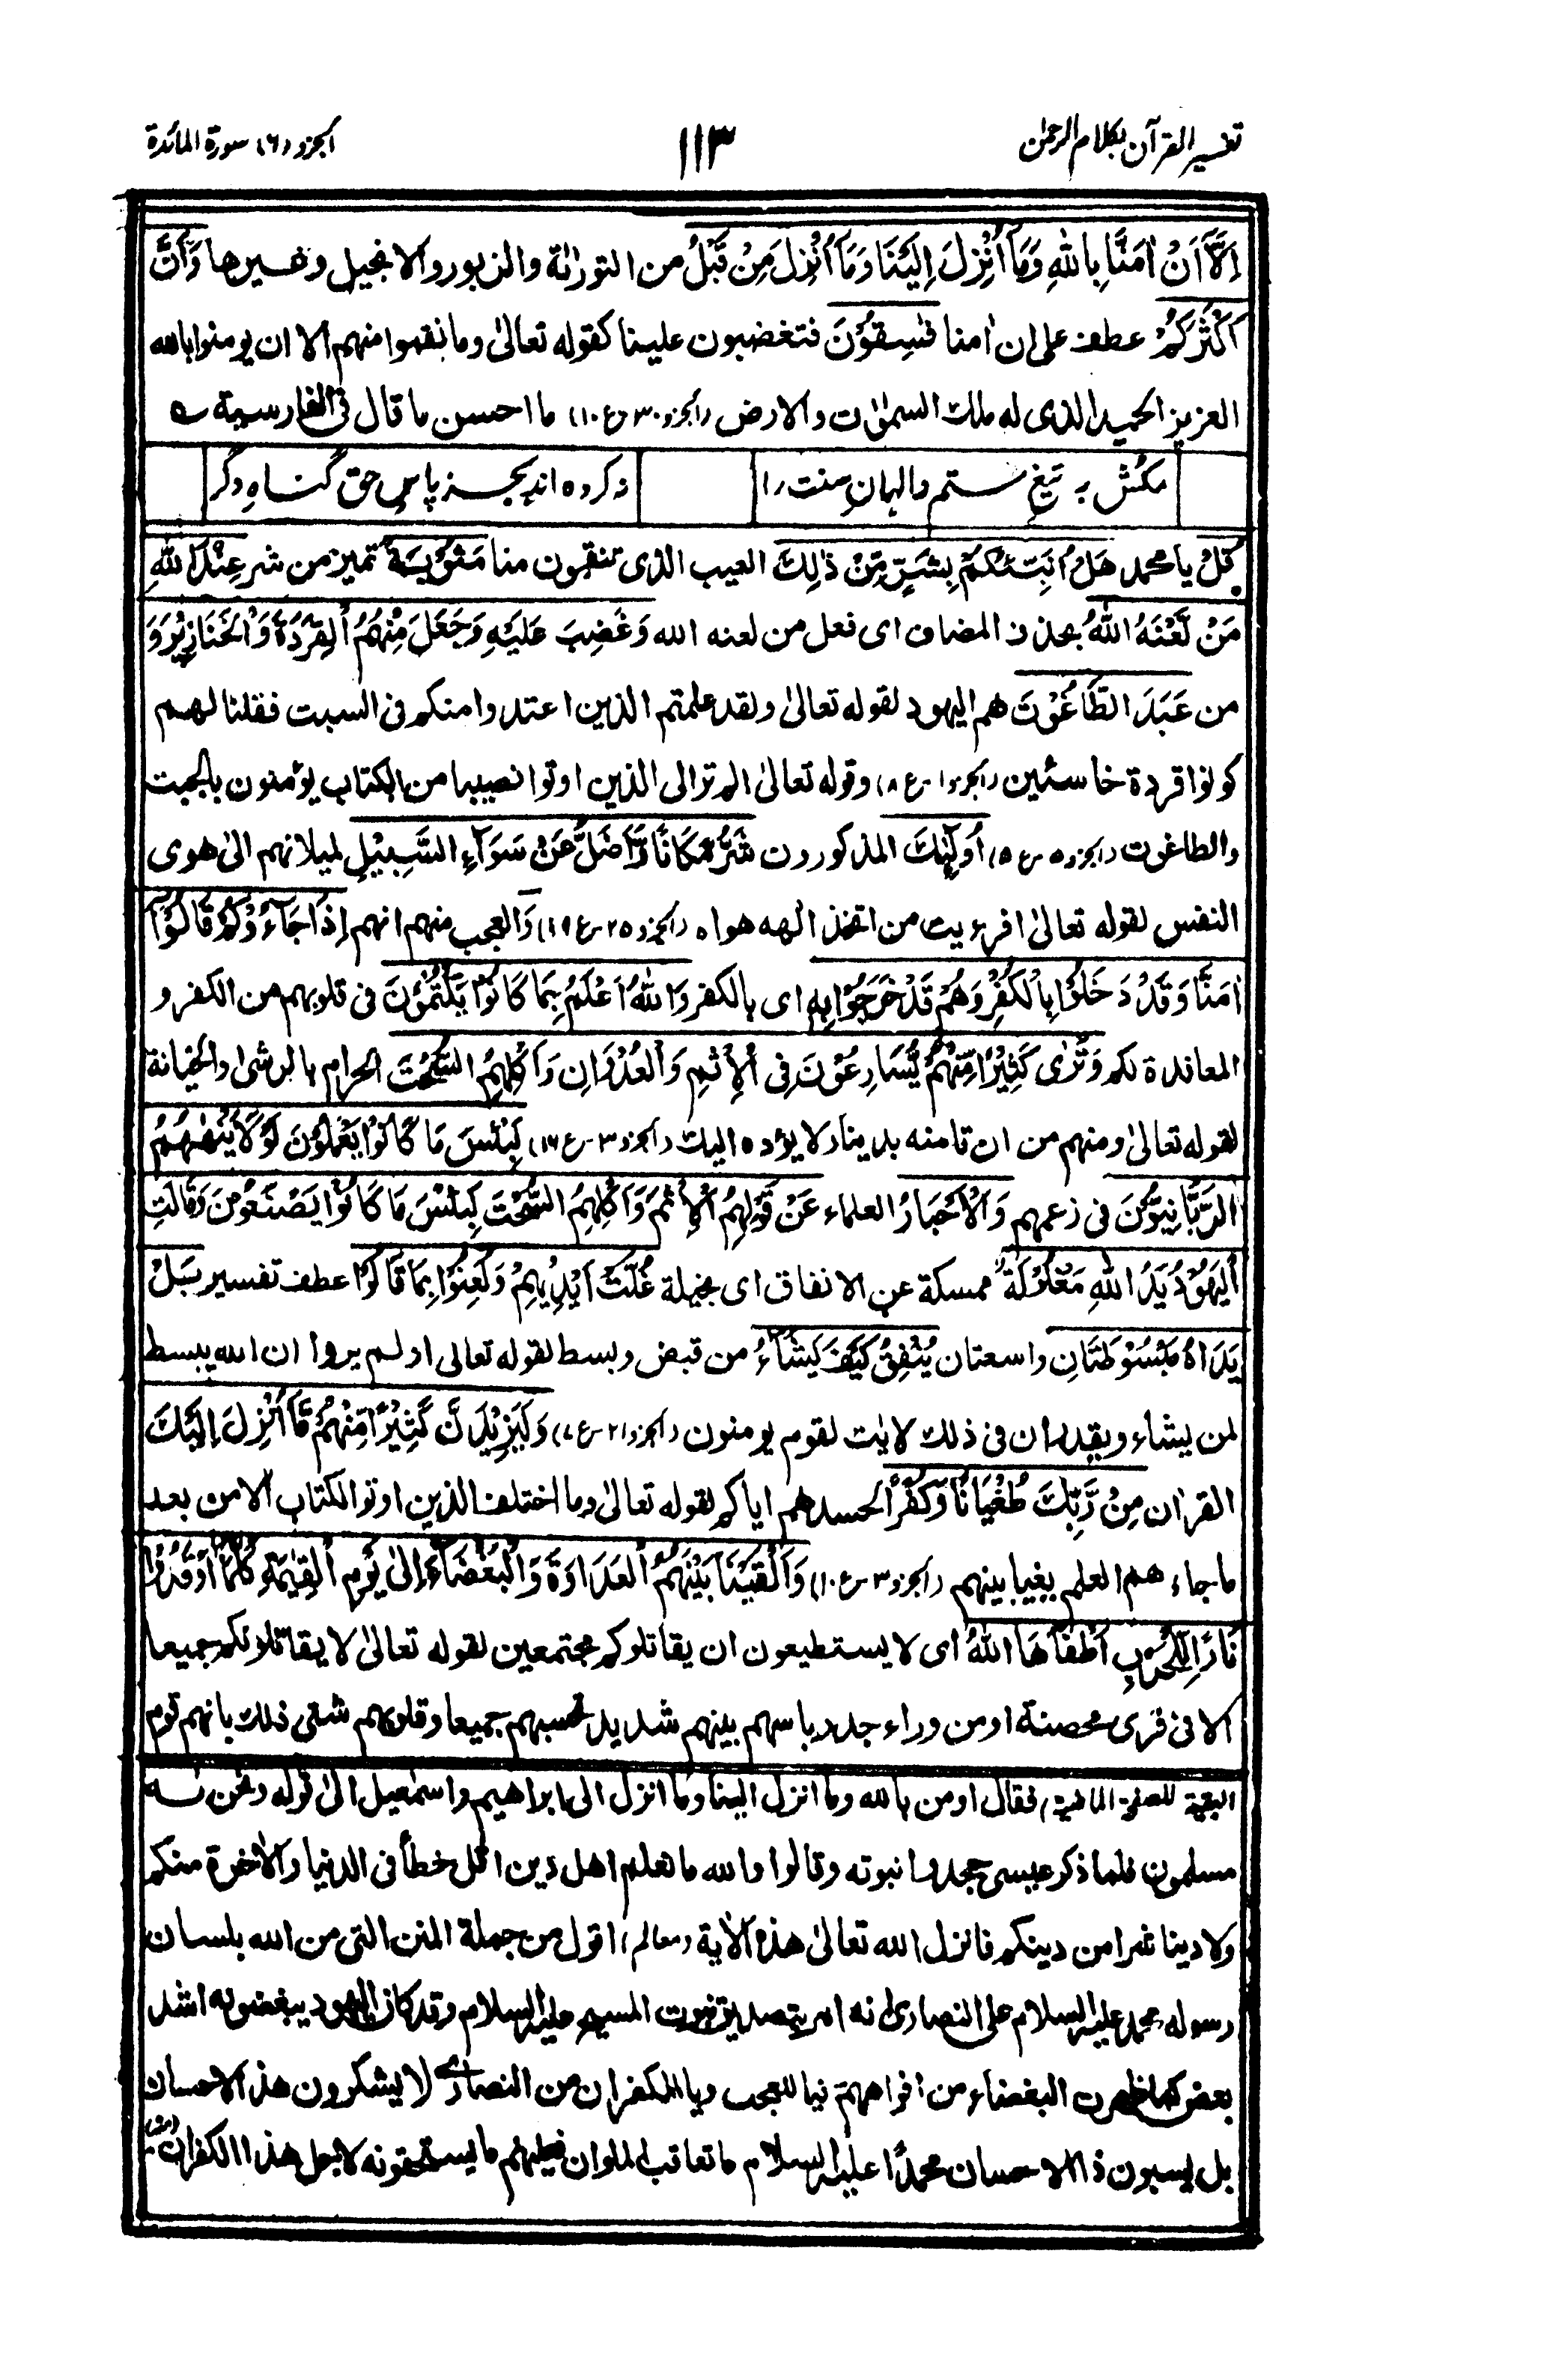 تفسير القرآن بكلام الرحمٰن
١١٣
الجزو (٦) سورة المائدة
اِلَّآ اَنْ اٰمَنَّا بِاللّٰهِ وَمَآ اُنْزِلَ اِلَيْنَا وَمَآ اُنْزِلَ مِنْ قَبْلُ من التورٰىة والزبور والانجيل وغيرها وَاَنَّ
اَكْثَرَكُمْ عطف على ان اٰمنا فٰسِقُوْنَ فتغضبون علينا كقوله تعالىٰ وما نقموا منهم الا ان يومنوا بالله
العزيز الحميد الذى له ملك السمٰوٰت والارض (الجزو ٣٠ ع ١٠) ما احسن ما قال فى الفارسية ؎
مكش به تيغ ستم والهان سنت را
نه كرده اند بجز پاس حق گناه دگر
قُلْ يا محمد هَلْ اُنَبِّئُكُمْ بِشَرٍّ مِّنْ ذٰلِكَ العيب الذى تنقمون منا مَثُوْبَةً تميز من شر عِنْدَ اللّٰهِ
مَنْ لَّعَنَهُ اللّٰهُ بحذف المضاف اى فعل من لعنه الله وَغَضِبَ عَلَيْهِ وَجَعَلَ مِنْهُمُ الْقِرَدَةَ وَالْخَنَازِيْرَ وَ
من عَبَدَ الطَّاغُوْتَ هم اليهود لقوله تعالىٰ ولقد علمتم الذين اعتدوا منكم فى السبت فقلنا لهم
كونوا قردة خاسئين (الجزو ١ ع ٨) وقوله تعالىٰ الم تر الى الذين اوتوا نصيبا من الكتاب يؤمنون بالجبت
والطاغوت (الجزو ٥ ع ٥) اُولٰٓئِكَ المذكورون شَرٌّ مَّكَانًا وَّاَضَلُّ عَنْ سَوَآءِ السَّبِيْلِ لميلانهم الىٰ هوى
النفس لقوله تعالىٰ افرءيت من اتخذ الٰهه هواه (الجزو ٢٥ ع ١٩) وَ العجب منهم انهم اِذَا جَآءُوْكُمْ قَالُوْٓا
اٰمَنَّا وَقَدْ دَخَلُوْا بِالْكُفْرِ وَهُمْ قَدْ خَرَجُوْا بِهٖ اى بالكفر وَاللّٰهُ اَعْلَمُ بِمَا كَانُوْا يَكْتُمُوْنَ فى قلوبهم من الكفر و
المعاندة لكم وَتَرٰى كَثِيْرًا مِّنْهُمْ يُسَارِعُوْنَ فِى الْاِثْمِ وَالْعُدْوَانِ وَاَكْلِهِمُ السُّحْتَ الحرام بالرشى والخيانة
لقوله تعالىٰ ومنهم من ان تامنه بدينار لا يؤده اليك (الجزو ٣ ع ١٦) لَبِئْسَ مَا كَانُوْا يَعْمَلُوْنَ لَوْلَا يَنْهٰهُمُ
الرَّبَّانِيُّوْنَ فى زعمهم وَالْاَحْبَارُ العلماء عَنْ قَوْلِهِمُ الْاِثْمَ وَاَكْلِهِمُ السُّحْتَ لَبِئْسَ مَا كَانُوْا يَصْنَعُوْنَ وَقَالَتِ
الْيَهُوْدُ يَدُ اللّٰهِ مَغْلُوْلَةٌ ممسكة عن الانفاق اى بخيلة غُلَّتْ اَيْدِيْهِمْ وَلُعِنُوْا بِمَا قَالُوْا عطف تفسير بَلْ
يَدَاهُ مَبْسُوْطَتَانِ واسعتان يُنْفِقُ كَيْفَ يَشَآءُ من قبض وبسط لقوله تعالى اولم يروا ان الله يبسط
لمن يشاء ويقدر ان فى ذلك لاٰيٰت لقوم يومنون (الجزو ٢١ ع ٧) وَلَيَزِيْدَنَّ كَثِيْرًا مِّنْهُمْ مَّآ اُنْزِلَ اِلَيْكَ
القراٰن مِنْ رَّبِّكَ طُغْيَانًا وَّكُفْرًا لحسدهم اياكم لقوله تعالىٰ وما اختلف الذين اوتوا الكتاب الا من بعد
ما جاءهم العلم بغيا بينهم (الجزو ٣ ع ١٠) وَاَلْقَيْنَا بَيْنَهُمُ الْعَدَاوَةَ وَالْبَغْضَآءَ اِلٰى يَوْمِ الْقِيٰمَةِ كُلَّمَآ اَوْقَدُوْا
نَارًا لِّلْحَرْبِ اَطْفَاَهَا اللّٰهُ اى لا يستطيعون ان يقاتلوكم مجتمعين لقوله تعالىٰ لا يقاتلونكم جميعا
الا فى قرى محصنة او من وراء جدر باسهم بينهم شديد تحسبهم جميعا وقلوبهم شتى ذلك بانهم قوم
البقية للصفحة الماضية) فقال اومن بالله وما انزل الينا وما انزل الى ابراهيم واسمٰعيل الىٰ قوله ونحن له
مسلمون فلما ذكر عيسى جحدوا نبوته وقالوا والله ما نعلم اهل دين اقل خطأ فى الدنيا والاٰخرة منكم
ولا دينا شرا من دينكم فانزل الله تعالىٰ هذه الاٰية (معالم) اقول من جملة المنن التى من الله بلسان
رسوله محمد عليه السلام على النصارىٰ انه امر بتصديق نبوت المسيح عليه السلام وقد كان اليهود يبغضونه اشد
بعض كما ظهرت البغضاء من افواههم فيا للعجب ويا للكفران من النصارى لا يشكرون هذ الاحسان
بل يسبون ذا الاحسان محمدًا عليه السلام ما تعاقب الملوان فعليهم ما يستحقونه لاجل هذا الكفران